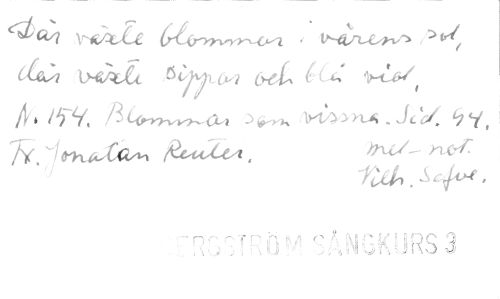 Där växte blommar i vårens sol,
där växte sippor och blå viol,
N. 154. Blommar som vissna. Sid. 94.
Tx. Jonatan Reuter. mel-not.
Vilh. Sefve.
BERGSTRÖM SÅNGKURS 3